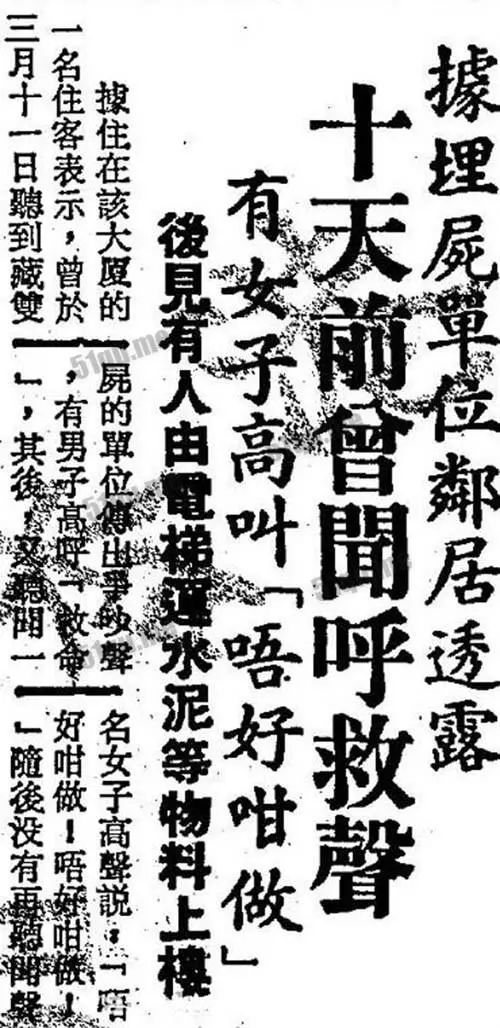 據埋屍單位鄰居透露
十天前曾聞呼救聲
有女子高叫「唔好咁做」
後見有人由電梯運水泥等物料上樓
據住在該大厦的
一名住客表示，曾於
三月十一日聽到藏雙
屍的單位傳出爭吵聲
，有男子高呼「救命
」，其後，又聽聞一
名女子高聲說：「唔
好咁做！唔好咁做！
」隨後没有再聽聞聲